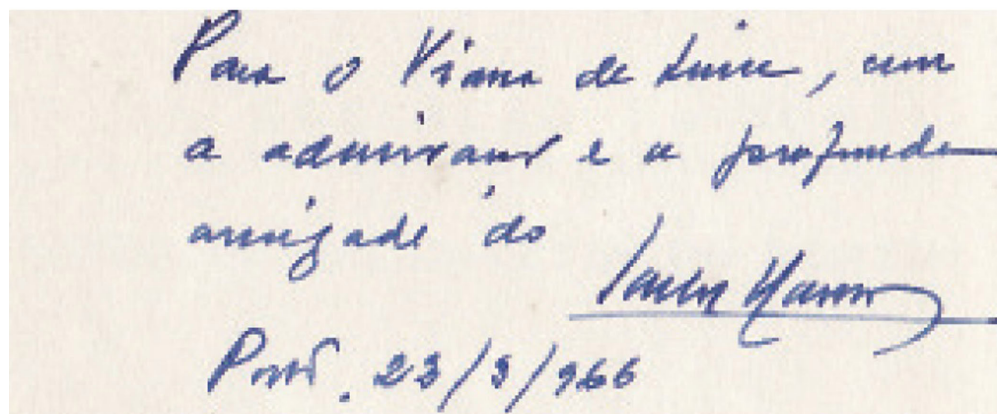 Para o Viana de Lima, com
a admiração e a profunda
amizade do
Porto, 23/3/966